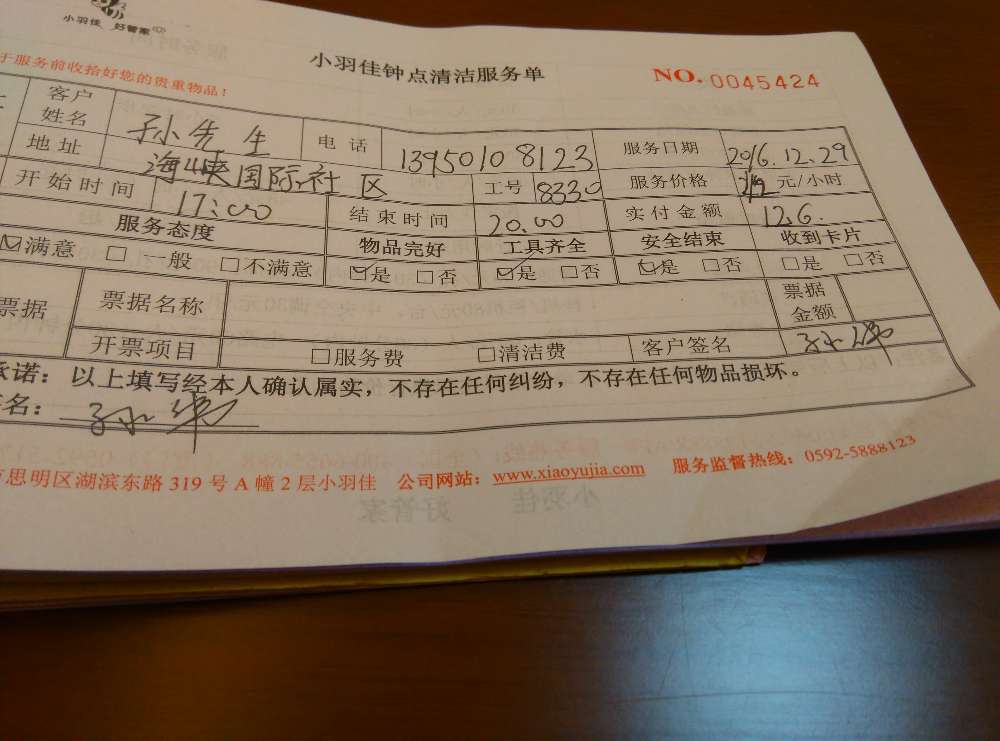 小羽佳 好管家
小羽佳钟点清洁服务单
NO. 0045424
于服务前收拾好您的贵重物品！
客户姓名 孙先生 电话 13950108123 服务日期 2016.12.29
地址 海峡国际社区 工号 8330 服务价格 元/小时
开始时间 17:00 结束时间 20.00 实付金额 12.6.
服务态度 物品完好 工具齐全 安全结束 收到卡片
☑满意 □一般 □不满意 ☑是 □否 ☑是 □否 ☑是 □否 □是 □否
票据 票据名称 票据金额
开票项目 □服务费 □清洁费 客户签名
承诺：以上填写经本人确认属实，不存在任何纠纷，不存在任何物品损坏。
名：
思明区湖滨东路 319 号 A 幢 2 层小羽佳 公司网站：www.xiaoyujia.com 服务监督热线：0592-5888123
小羽佳 好管家